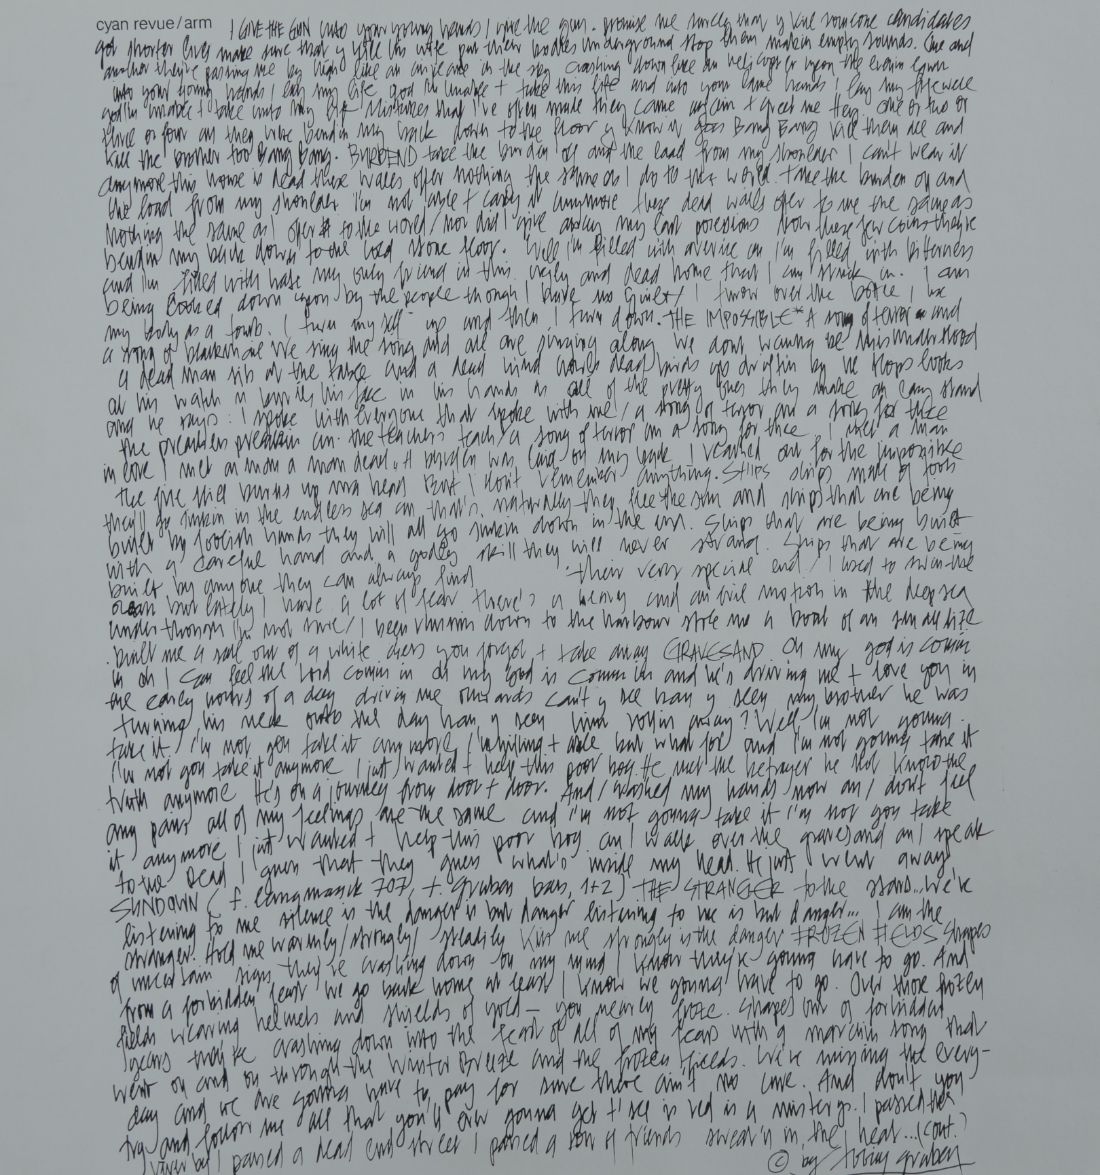 cyan revue/arm
I GIVE THE GUN into your young hands I give the gun. promise me surely that y kill someone candidates
got shorter lives make sure that y kill his wife put their bodies underground stop them makin empty sounds. One and
another they're passing me by high like an airplane in the sky crashing down like an helicopter upon the evenin lawn
into your young hands I lay my life god is unable t take this life and into your same hands I lay my life well
god is unable t take unto my life mistakes that I've often made they came again t greet me Hey one or two or
three or four an then were bendin my back down to the floor y know it goes Bang Bang kill them all and
kill the brother too Bang bang. BURDEND take the burden off and the load from my shoulder I can't wear it
anymore this house is dead these walls offer nothing the same as I do to the world. take the burden off and
the load from my shoulder I'm not able t carry it anymore these dead walls offer to me the same as
nothing the same as I offer to the world/nor did I give away my last posessions Now these few coins they're
bendin my back down to the cold stone floor. Well I'm filled with avarice an I'm filled with bitterness
and I'm filled with hate my only friend in this ugly and dead home that I am stuck in. I am
being looked down upon by the people though I have no guilt/ I turn over the bottle I use
my body as a tomb. I turn my self up and then I turn down. THE IMPOSSIBLE* A song of terror and
a song of blackwhole We sing the song and all are singing along We dont wanna be misunderstood
a dead man sits at the table and a dead wind howls dead birds go driftin by he stops looks
at his watch n buries his face in his hands as all of the pretty ones they make an easy stand
and he says: I spoke with everyone that spoke with me/a song of terror an a song for thee
the preachers preachin an the teachers teach/a song of terror an a song for thee I met a man
in love I met an man a man dead. A burden was laid on my back I reached out for the impossible
the fire still burns up ma head But I don't remember anything. SHIPS ships made of fools
they'll go sinkin in the endless sea an that's naturally they see the sun and ships that are being
built by foolish hands they will all go sinkin down in the end. Ships that are being built
with a careful hand and a godley skill they will never strand. Ships that are being
built by anyone they can always find their very special end/ I used to swim the
ocean but lately I have a lot of fear there's a heavy and an evil motion in the deep sea
under though I'm not sure/I been runnin down to the harbour stole me a boat of an small size
built me a sail out of a white dress you forgot t take away GRAVESAND. Oh my god is comin
in oh I can feel the lord comin in oh my god is comin in and he's driving me t love you in
the early hours of a day drivin me onwards can't y see han y seen my brother he was
turning his neck onto the day han y seen him rollin away? Well I'm not gonna
take it I'm not gon take it anymore I'm willing t able but what for and I'm not gonna take it
I'm not gon take it anymore I just wanted t help this poor boy. He met the betrayer he not know the
truth anymore He's on a journey from door t door. And I washed my hands now an I dont feel
any pain all of my feelings are the same and I'm not gonna take it I'm not gon take
it anymore I just wanted t help this poor boy an I walk over the gravesand an I speak
to the dead I guess that they guess what's inside my head. He just went away
SUNDOWN (f. langmagick 707, t. graben bars, 1+2) THE STRANGER to the stars... We're
listening to me silence is the danger is but danger listening to me is but danger... I am the
stranger. Hold me warmly/strongly/ steadily kiss me strongly is the danger FROZEN FIELDS Shapes
of uncertain signs they're crashing down on my mind I know they're gonna have to go. And
from a forbidden fear we go back home at least I know we gonna have to go. Over those frozen
fields wearing helmets and shields of gold – you nearly froze. Shapes out of forbidden
years they're crashing down into the fear of all of my fears with a marchin song that
went on and on through the winter breeze and the frozen fields. We're missing the every-
day and we are gonna have to pay for sure there ain't no cure. And don't you
try and follow me all that you'll ever gonna get t' see is red is a mistery. I passed the
river by I passed a dead end street I passed a row of friends sweat'n in the heat...(cont.)
© by Bobby Graben